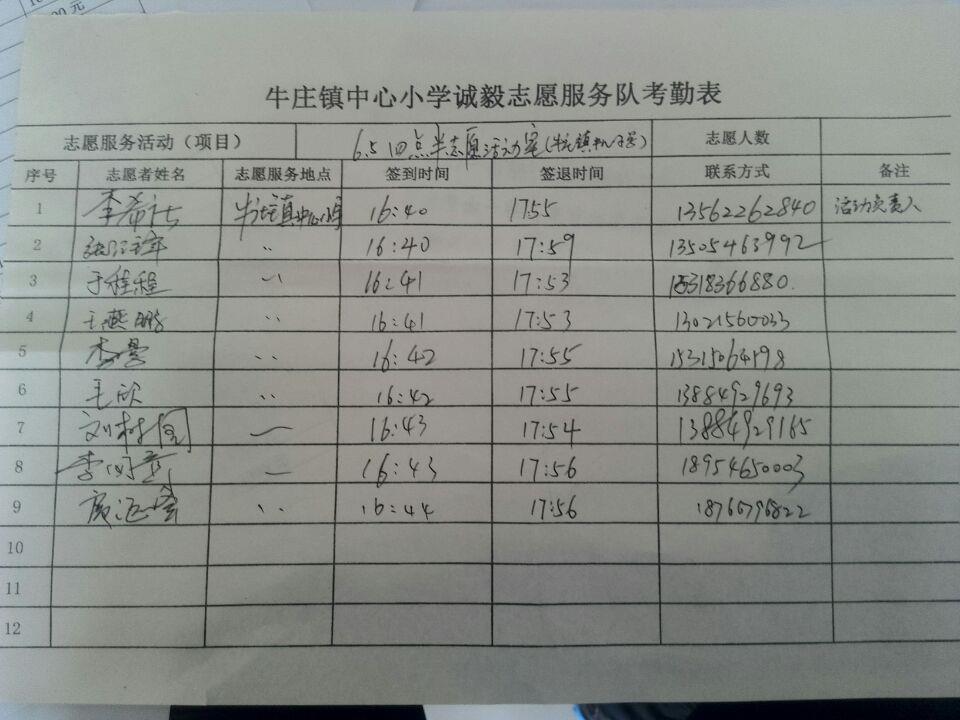 00元
牛庄镇中心小学诚毅志愿服务队考勤表
志愿服务活动（项目） 6.5四点半志愿活动室(牛庄镇中心小学) 志愿人数
序号 志愿者姓名 志愿服务地点 签到时间 签退时间 联系方式 备注
1 李希 牛庄镇中心小学 16:40 17:55 13562262840 活动负责人
2 16:40 17:59 13505463992
3 于程程 16:41 17:53 15318366880
4 王燕鹏 16:41 17:53 13021560033
5 16:42 17:55 15315064198
6 王欣 16:42 17:55 13884929693
7 刘树国 16:43 17:54 13884929165
8 李 16:43 17:56 18954650003
9 16:44 17:56 18766796822
10
11
12